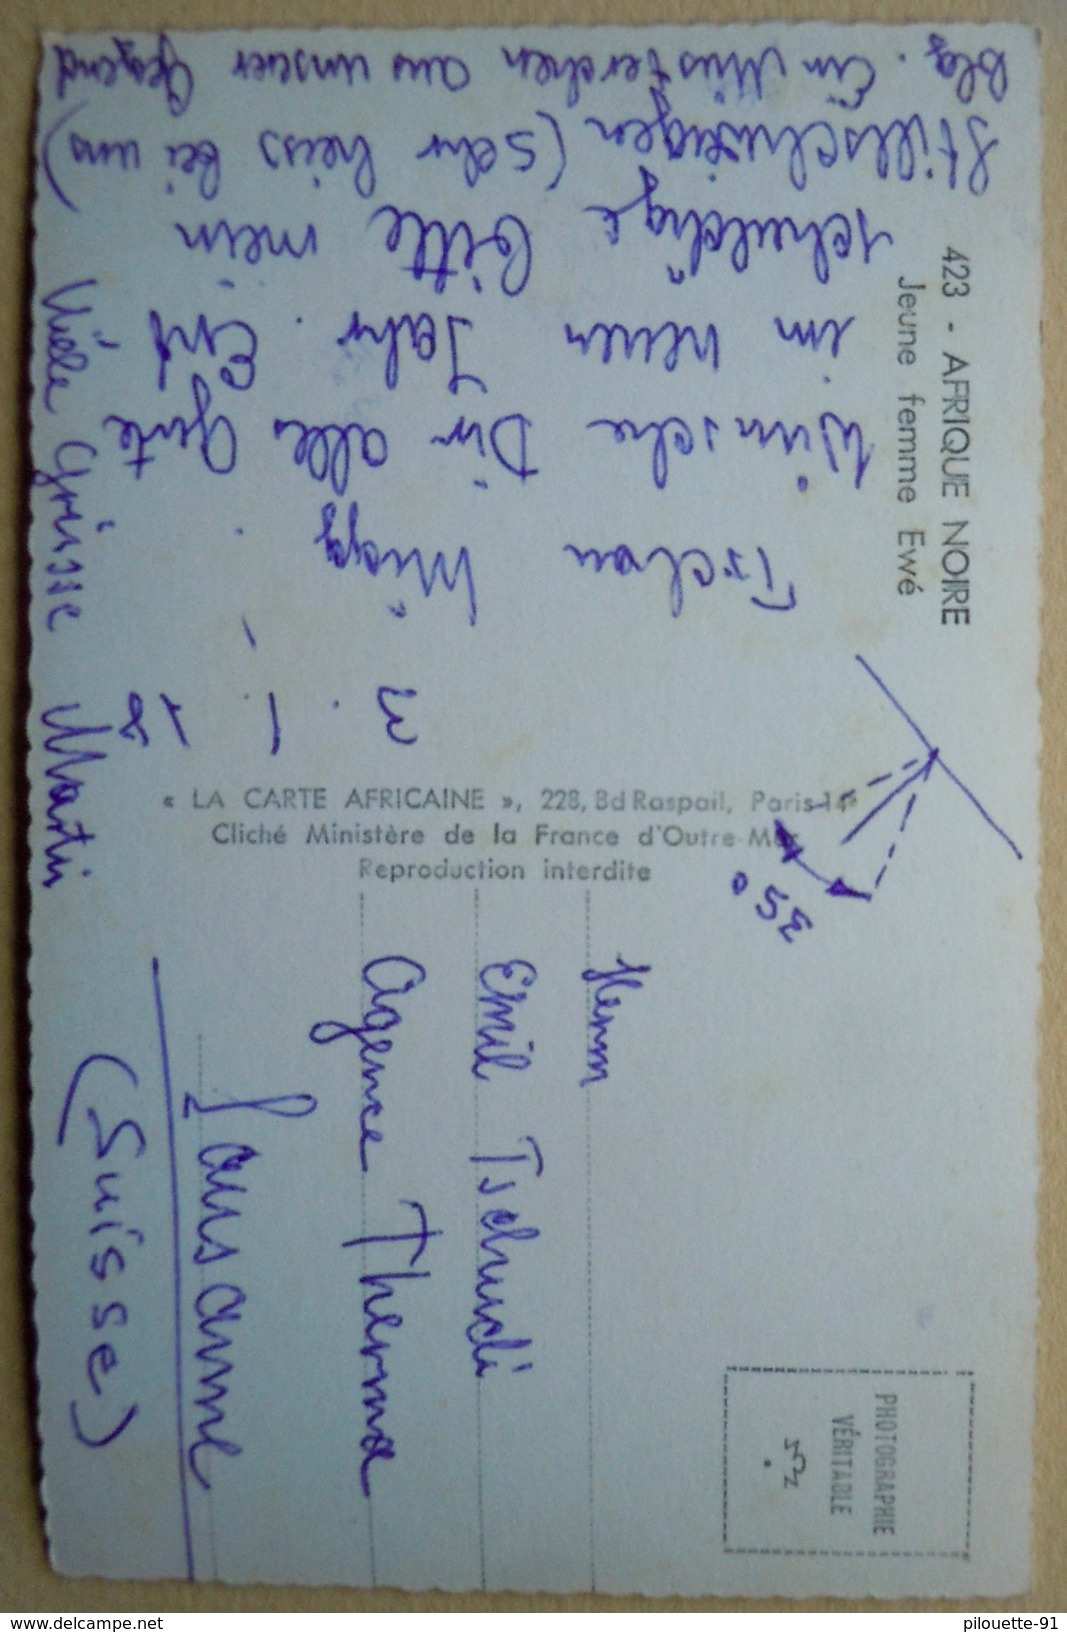 423 - AFRIQUE NOIRE
Jeune femme Ewé
« LA CARTE AFRICAINE », 228, Bd Raspail, Paris-14e
Cliché Ministère de la France d'Outre-Mer
Reproduction interdite
PHOTOGRAPHIE
VÉRITABLE
Tschau
Wünsche Dir alles Gute
im neuen Jahr. Ent
schuldige bitte mein
Stillschweigen (Sehr heiss bei uns)
Blg. Ein Müsterchen aus unserer Gegend
Viele Grüsse Martin
35°
Herrn
Emil Tschudi
Agence Therma
Lausanne
(Suisse)
www.delcampe.net
pilouette-91